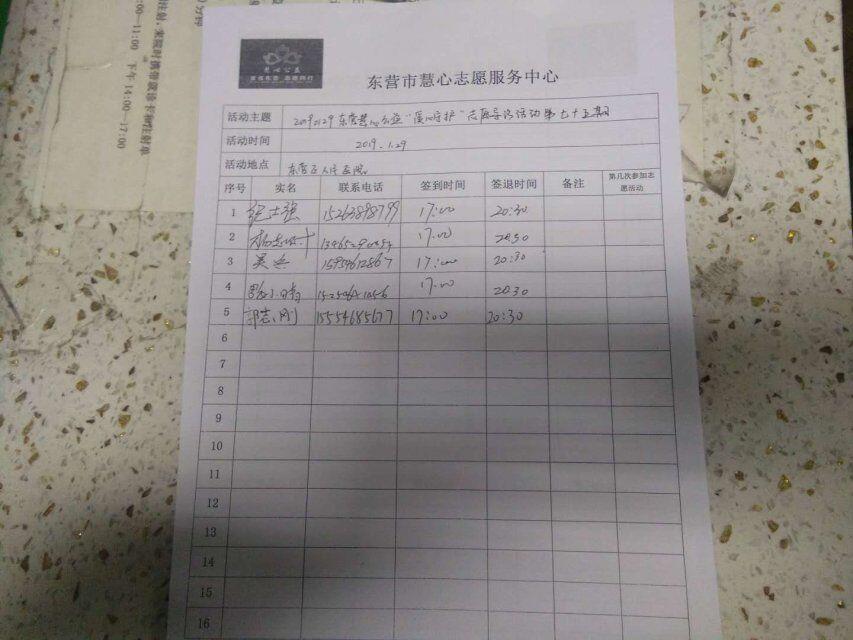 注射，来院时携带就诊卡和注射单
—11:00 下午 14:00—17:00
慧心公益
东营市慧心志愿服务中心
活动主题 20190129东营慧心公益"暖心守护"志愿导诊活动第七十五期
活动时间 2019.1.29
活动地点 东营区人民医院
序号 实名 联系电话 签到时间 签退时间 备注 第几次参加志愿活动
1 士强 15263898799 17:00 20:30
2 17:00 20:30
3 15954612867 17:00 20:30
4 17:00 20:30
5 郭志刚 15554685677 17:00 20:30
6
7
8
9
10
11
12
13
14
15
16